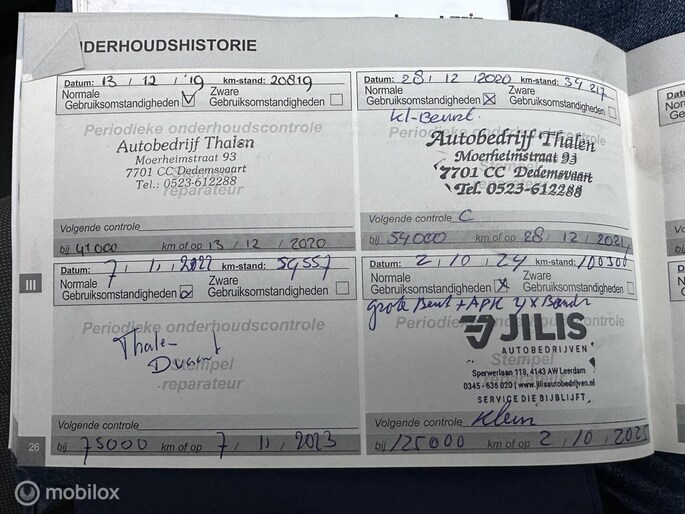 NDERHOUDSHISTORIE
Datum: 13 / 12 / '19 km-stand: 20819
Normale Gebruiksomstandigheden
Zware Gebruiksomstandigheden
Periodieke onderhoudscontrole
Autobedrijf Thalen
Moerheimstraat 93
7701 CC Dedemsvaart
Tel.: 0523-612288
reparateur
Volgende controle
bij 41000 km of op 13 / 12 / 2020
Datum: 28 / 12 / 2020 km-stand: 34217
Normale Gebruiksomstandigheden
Zware Gebruiksomstandigheden
Kl-Beurt.
Periodieke onderhoudscontrole
Autobedrijf Thalen
Moerheimstraat 93
7701 CC Dedemsvaart
Stempel
Tel. 0523-612288
reparateur
Volgende controle C
bij 54000 km of op 28 / 12 / 2021
III
Datum: 7 / 11 / 2022 km-stand: 54557
Normale Gebruiksomstandigheden
Zware Gebruiksomstandigheden
Periodieke onderhoudscontrole
Thale-
Stempel
reparateur
Volgende controle
bij 75000 km of op 7 / 11 / 2023
Datum: 2 / 10 / 24 km-stand: 100300
Normale Gebruiksomstandigheden
Zware Gebruiksomstandigheden
grote Beurt + APK 4x Band
Periodieke onderhoudscontrole
JILIS
AUTOBEDRIJVEN
Stempel
Sperwerlaan 118, 4143 AW Leerdam
0345 - 636 020 | www.jilisautobedrijven.nl
reparateur
SERVICE DIE BIJBLIJFT
Volgende controle Klein
bij 125000 km of op 2 / 10 / 2025
26
mobilox